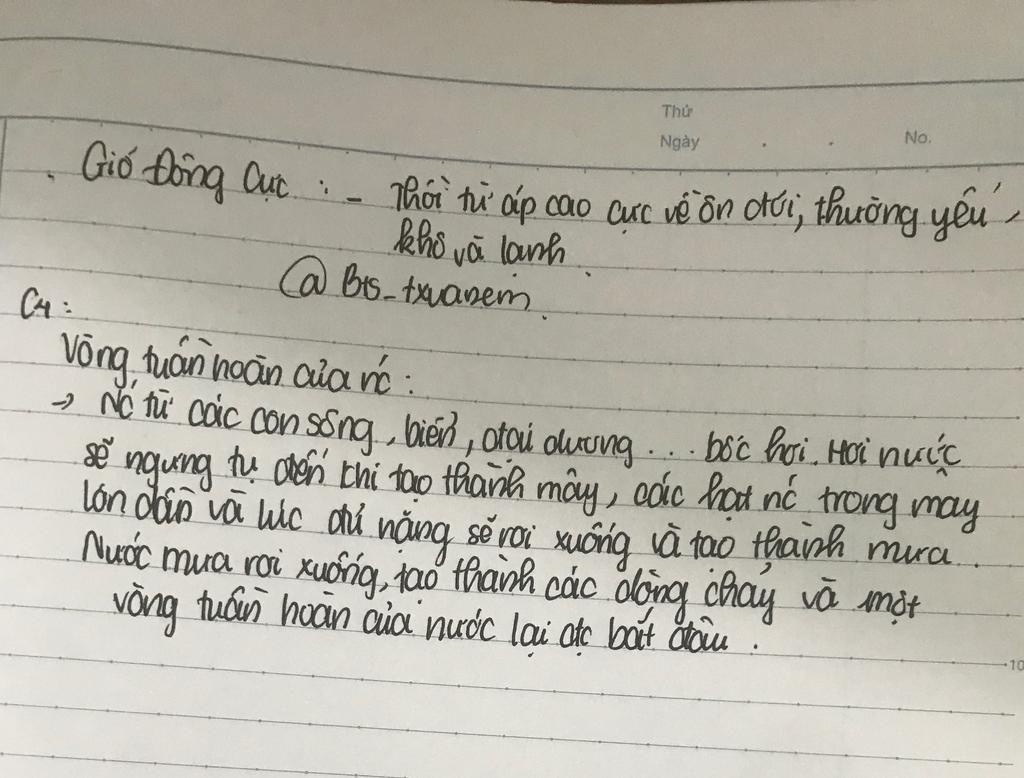 Thứ
Ngày . . No.
. Gió Đông Cực : - Thổi từ áp cao cực về ôn đới, thường yếu,
khô và lạnh.
@Bts_txvanem.
C4:
Vòng tuần hoàn của nc :
→ Nc từ các con sông, biển, đại dương ... bốc hơi. Hơi nước
sẽ ngưng tụ đến khi tạo thành mây, các hạt nc trong mây
lớn dần và lúc đủ nặng sẽ rơi xuống và tạo thành mưa.
Nước mưa rơi xuống, tạo thành các dòng chảy và một
vòng tuần hoàn của nước lại đc bắt đầu.
10